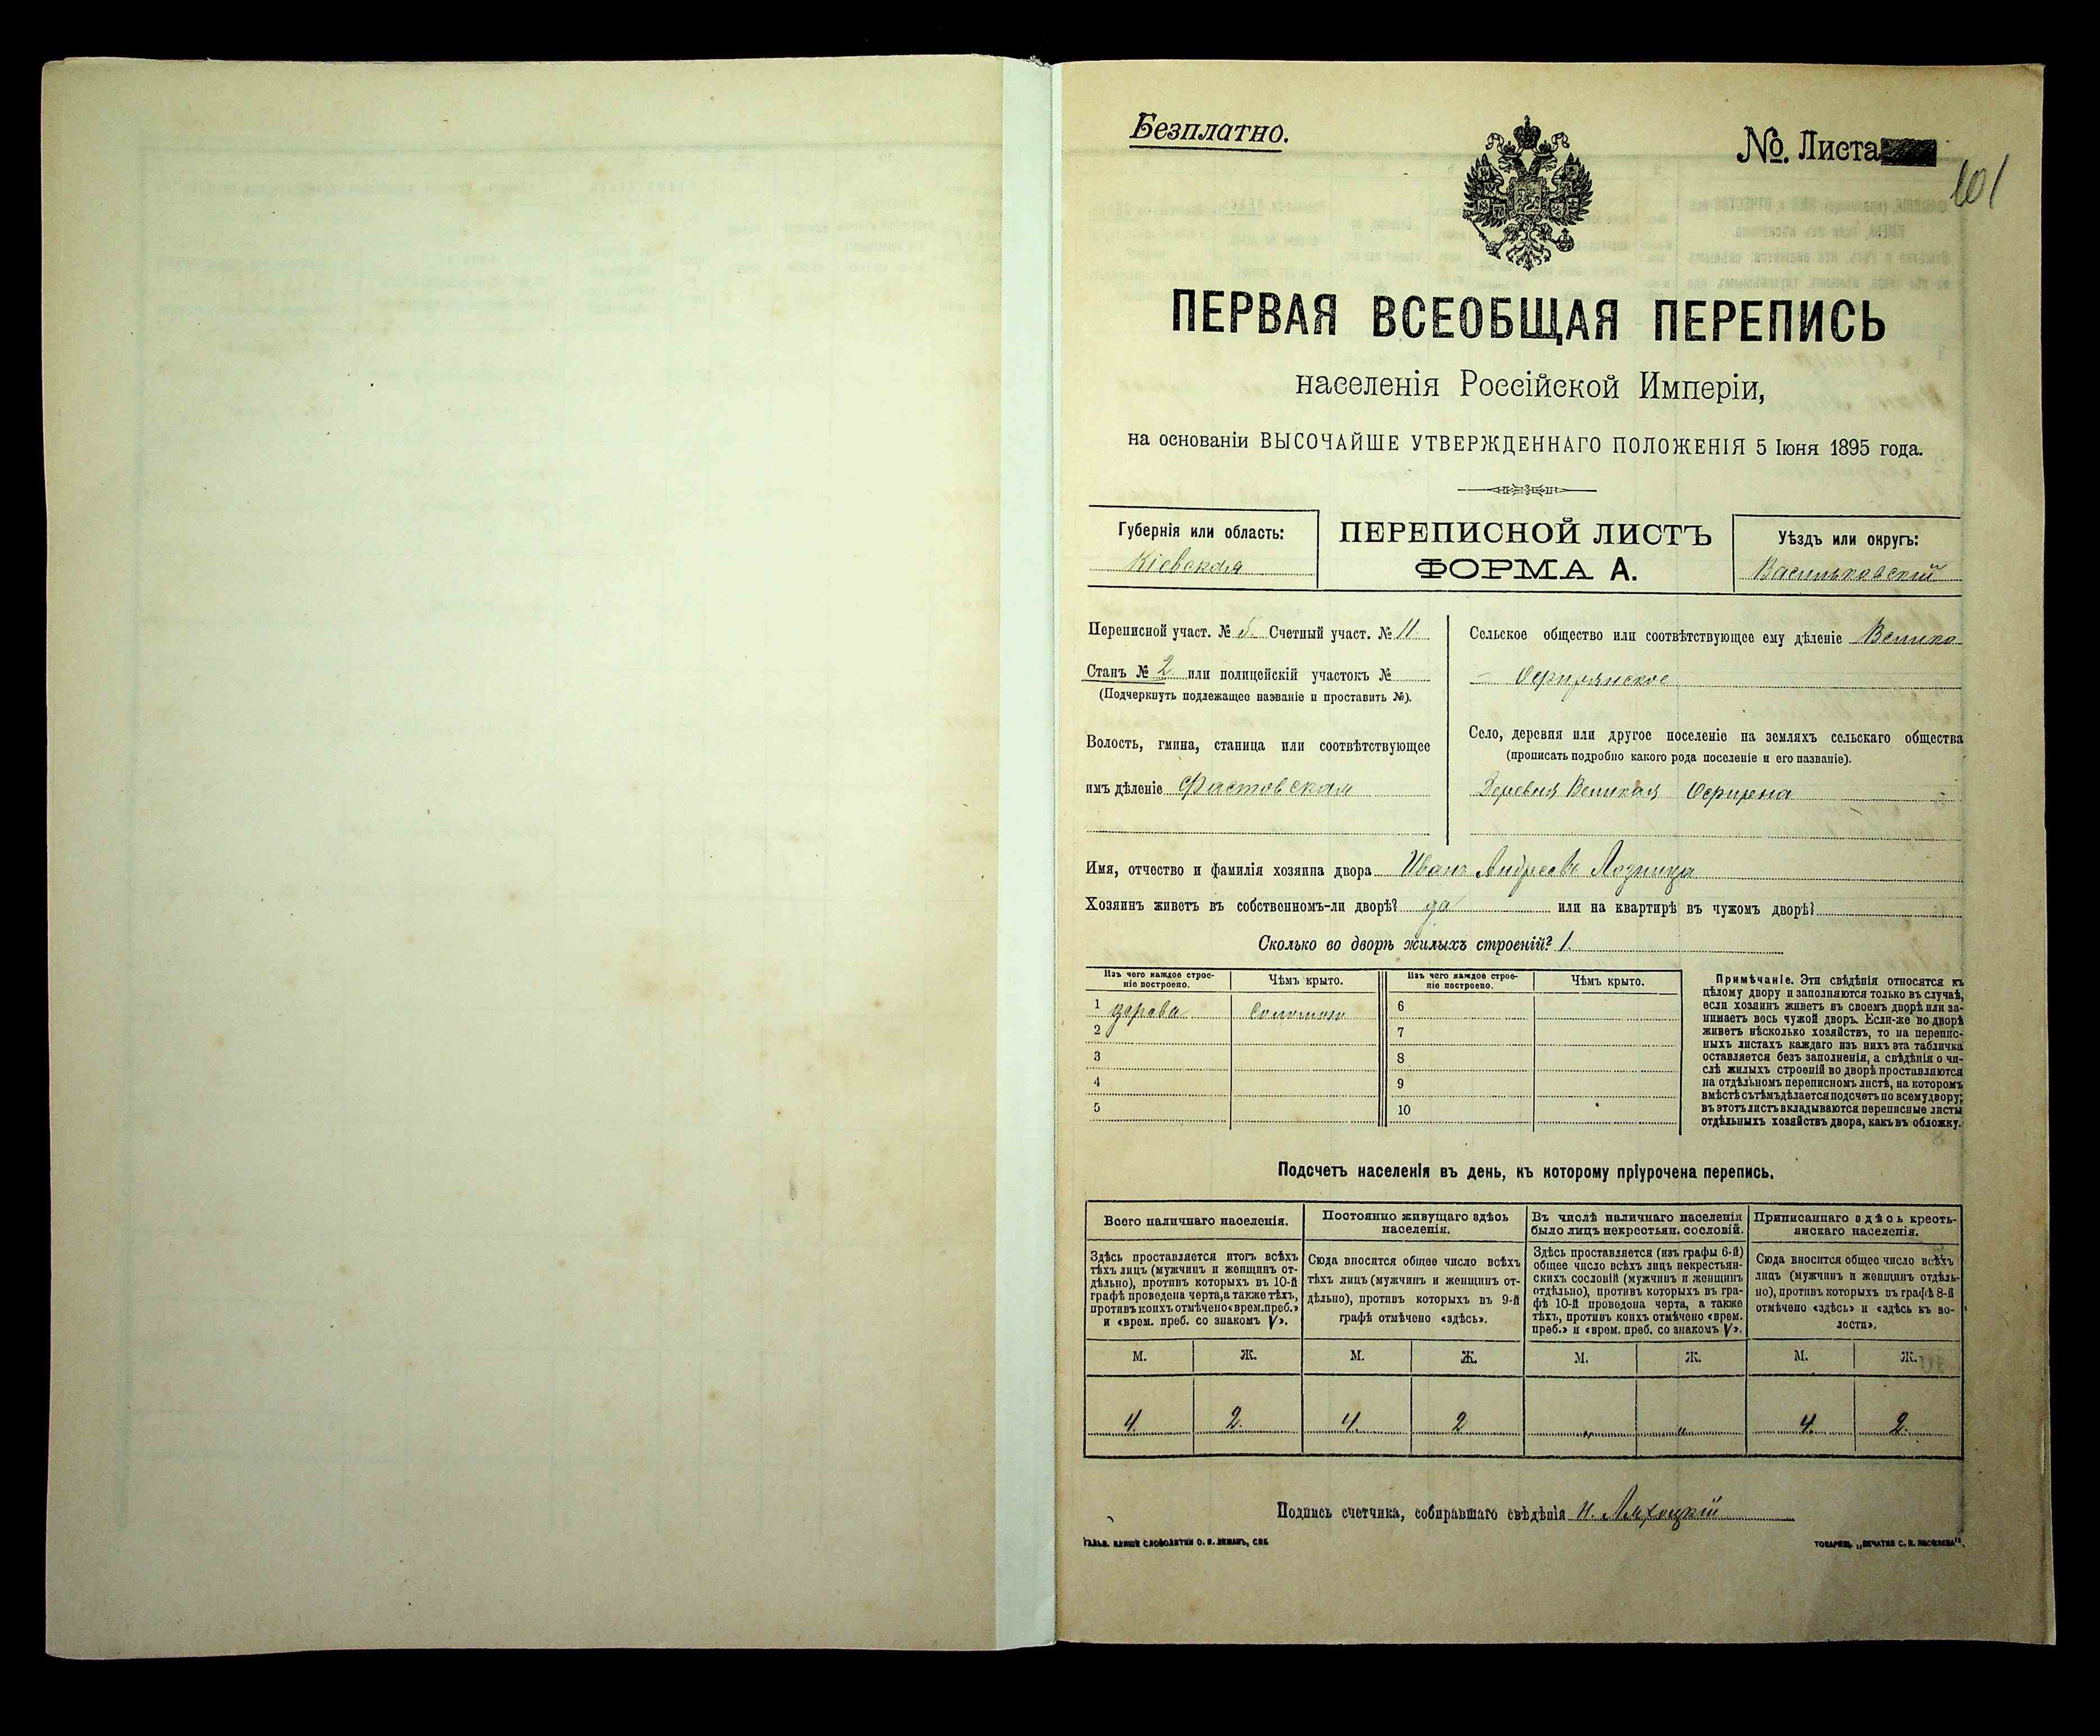 Безплатно.
No. Листа
101
ПЕРВАЯ ВСЕОБЩАЯ ПЕРЕПИСЬ
населенія Россійской Имперіи,
на основаніи ВЫСОЧАЙШЕ УТВЕРЖДЕННАГО ПОЛОЖЕНІЯ 5 Іюня 1895 года.
Губернія или область:
Кіевская
ПЕРЕПИСНОЙ ЛИСТЪ
ФОРМА А.
Уѣздъ или округъ:
Васильковскій
Переписной участ. № 5. Счетный участ. № 11.
Станъ № 2 или полицейскій участокъ №
(Подчеркнуть подлежащее названіе и проставить №).
Волость, гмина, станица или соотвѣтствующее
имъ дѣленіе Фастовская
Сельское общество или соотвѣтствующее ему дѣленіе Велико
-
Село, деревня или другое поселеніе на земляхъ сельскаго общества
(прописать подробно какого рода поселеніе и его названіе).
Деревня Великая
Имя, отчество и фамилія хозяина двора Иванъ Андреевъ Лозница
Хозяинъ живетъ въ собственномъ-ли дворѣ? да или на квартирѣ въ чужомъ дворѣ?
Сколько во дворѣ жилыхъ строеній? 1.
Изъ чего каждое строе-
ніе построено.
Чѣмъ крыто.
Изъ чего каждое строе-
ніе построено.
Чѣмъ крыто.
1 дерева соломою 6
2 7
3 8
4 9
5 10
Примѣчаніе. Эти свѣдѣнія относятся къ
цѣлому двору и заполняются только въ случаѣ,
если хозяинъ живетъ въ своемъ дворѣ или за-
нимаетъ весь чужой дворъ. Если-же во дворѣ
живетъ нѣсколько хозяйствъ, то на перепис-
ныхъ листахъ каждаго изъ нихъ эта табличка
оставляется безъ заполненія, а свѣдѣнія о чи-
слѣ жилыхъ строеній во дворѣ проставляются
на отдѣльномъ переписномъ листѣ, на которомъ
вмѣстѣ съ тѣмъ дѣлается подсчетъ по всему двору;
въ этотъ листъ вкладываются переписные листы
отдѣльныхъ хозяйствъ двора, какъ въ обложку.
Подсчетъ населенія въ день, къ которому пріурочена перепись.
Всего наличнаго населенія.
Здѣсь проставляется итогъ всѣхъ
тѣхъ лицъ (мужчинъ и женщинъ от-
дѣльно), противъ которыхъ въ 10-й
графѣ проведена черта, а также тѣхъ,
противъ коихъ отмѣчено «врем. преб.»
и «врем. преб. со знакомъ V».
Постоянно живущаго здѣсь
населенія.
Сюда вносится общее число всѣхъ
тѣхъ лицъ (мужчинъ и женщинъ от-
дѣльно), противъ которыхъ въ 9-й
графѣ отмѣчено «здѣсь».
Въ числѣ наличнаго населенія
было лицъ некрестьян. сословій.
Здѣсь проставляется (изъ графы 6-й)
общее число всѣхъ лицъ некрестьян-
скихъ сословій (мужчинъ и женщинъ
отдѣльно), противъ которыхъ въ гра-
фѣ 10-й проведена черта, а также
тѣхъ, противъ коихъ отмѣчено «врем.
преб.» и «врем. преб. со знакомъ V».
Приписаннаго здѣсь кресть-
янскаго населенія.
Сюда вносится общее число всѣхъ
лицъ (мужчинъ и женщинъ отдѣль-
но), противъ которыхъ въ графѣ 8-й
отмѣчено «здѣсь» и «здѣсь къ во-
лости».
М. Ж. М. Ж. М. Ж. М. Ж.
4. 2. 4. 2 „ „ 4. 2.
Подпись счетчика, собиравшаго свѣдѣнія Н. Ляхоцкій
ГАЛЬВ. КЛИШЕ СЛОВОЛИТНИ О. И. ЛЕМАНЪ, СПБ.
ТОВАРИЩ. „ПЕЧАТНЯ С. П. ЯКОВЛЕВА".